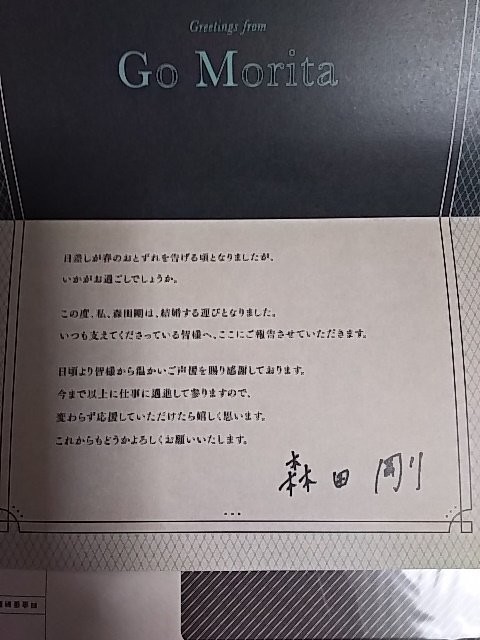 Greetings from
Go Morita
日差しが春のおとずれを告げる頃となりましたが、
いかがお過ごしでしょうか。
この度、私、森田剛は、結婚する運びとなりました。
いつも支えてくださっている皆様へ、ここにご報告させていただきます。
日頃より皆様から温かいご声援を賜り感謝しております。
今まで以上に仕事に邁進して参りますので、
変わらず応援していただけたら嬉しく思います。
これからもどうかよろしくお願いいたします。
森田剛